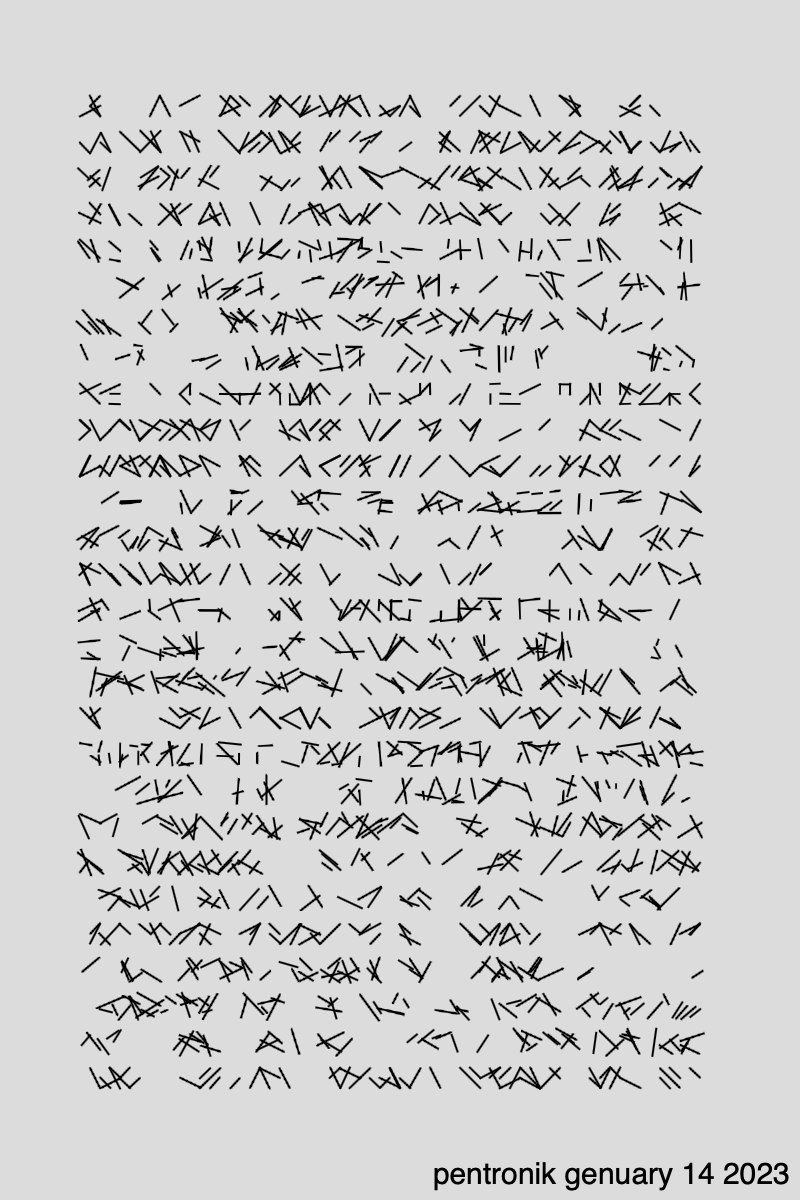 pentronik genuary 14 2023